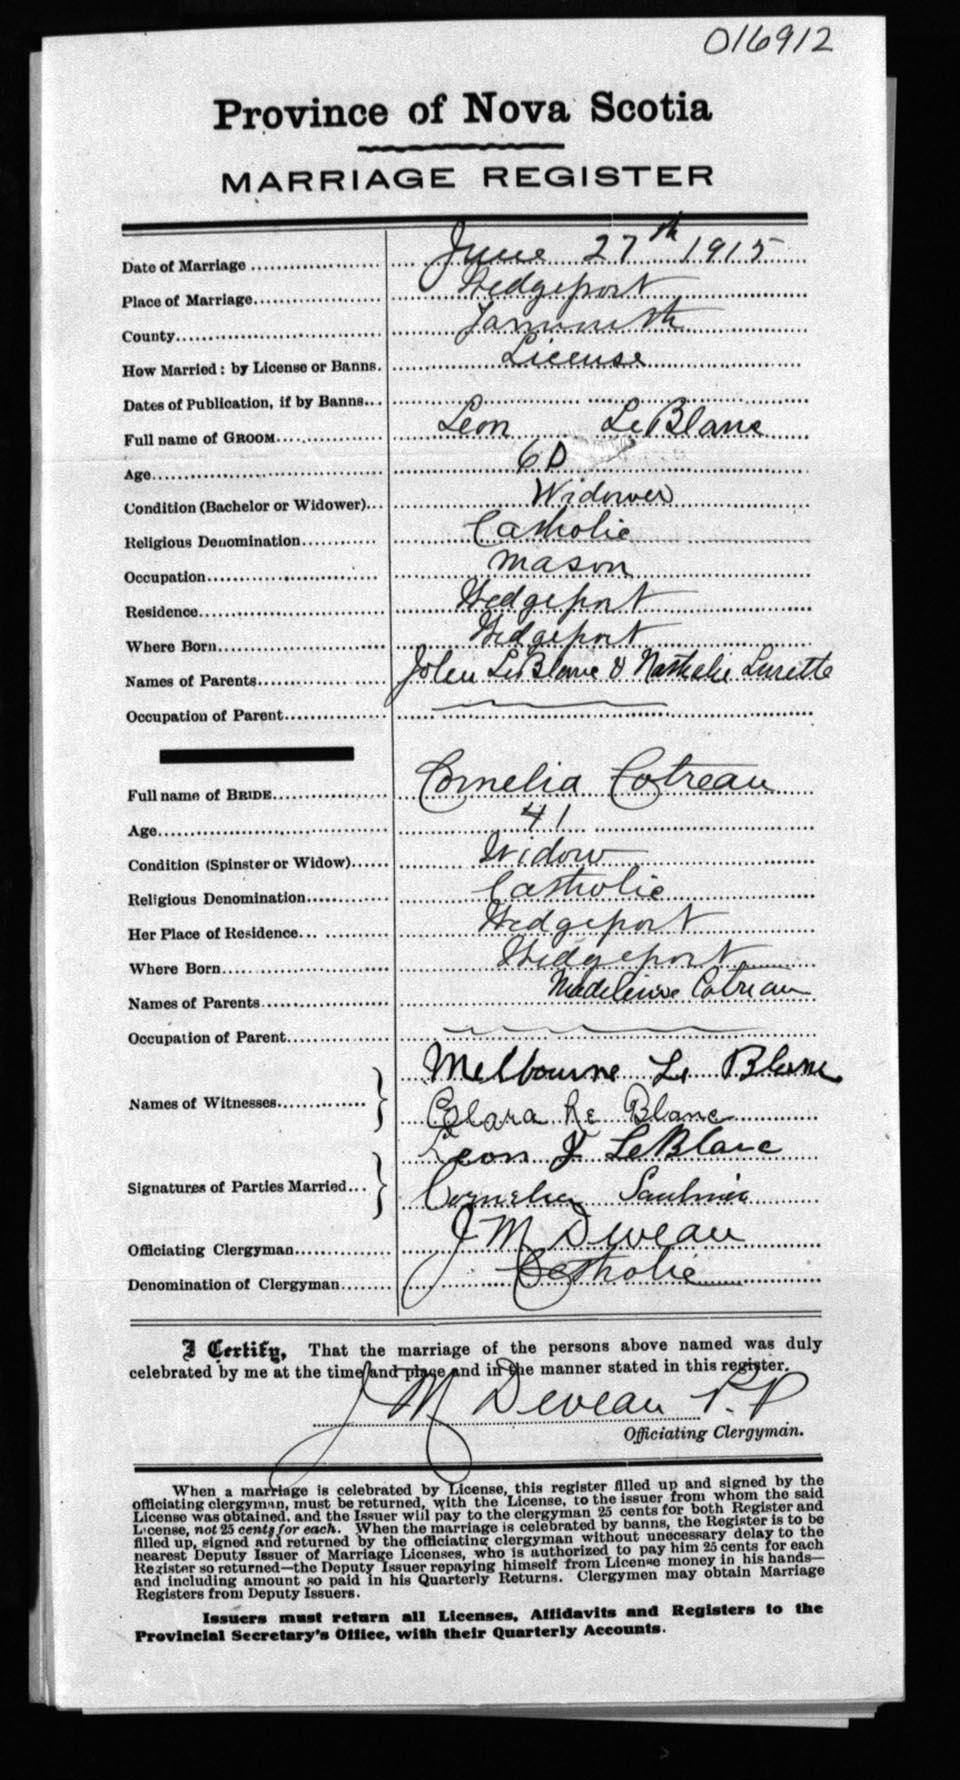 016912
Province of Nova Scotia
MARRIAGE REGISTER
Date of Marriage June 27th 1915
Place of Marriage Wedgeport
County Yarmouth
How Married: by License or Banns. License
Dates of Publication, if by Banns
Full name of GROOM Leon LeBlanc
Age 60
Condition (Bachelor or Widower) Widower
Religious Denomination Catholic
Occupation Mason
Residence Wedgeport
Where Born Wedgeport
Names of Parents John LeBlanc & Nathalie Surette
Occupation of Parent
Full name of BRIDE Cornelia Cotreau
Age 41
Condition (Spinster or Widow) Widow
Religious Denomination Catholic
Her Place of Residence Wedgeport
Where Born Wedgeport
Names of Parents Madeleine Cotreau
Occupation of Parent
Names of Witnesses Melbourne Le Blanc
Clara Le Blanc
Signatures of Parties Married Leon J LeBlanc
Cornelia Saulnier
Officiating Clergyman J M Deveau
Denomination of Clergyman Catholic
I Certify, That the marriage of the persons above named was duly
celebrated by me at the time and place and in the manner stated in this register.
J M Deveau P.P
Officiating Clergyman.
When a marriage is celebrated by License, this register filled up and signed by the
officiating clergyman, must be returned, with the License, to the issuer from whom the said
License was obtained. and the Issuer will pay to the clergyman 25 cents for both Register and
License, not 25 cents for each. When the marriage is celebrated by banns, the Register is to be
filled up, signed and returned by the officiating clergyman without unecessary delay to the
nearest Deputy Issuer of Marriage Licenses, who is authorized to pay him 25 cents for each
Register so returned—the Deputy Issuer repaying himself from License money in his hands—
and including amount so paid in his Quarterly Returns. Clergymen may obtain Marriage
Registers from Deputy Issuers.
Issuers must return all Licenses, Affidavits and Registers to the
Provincial Secretary's Office, with their Quarterly Accounts.